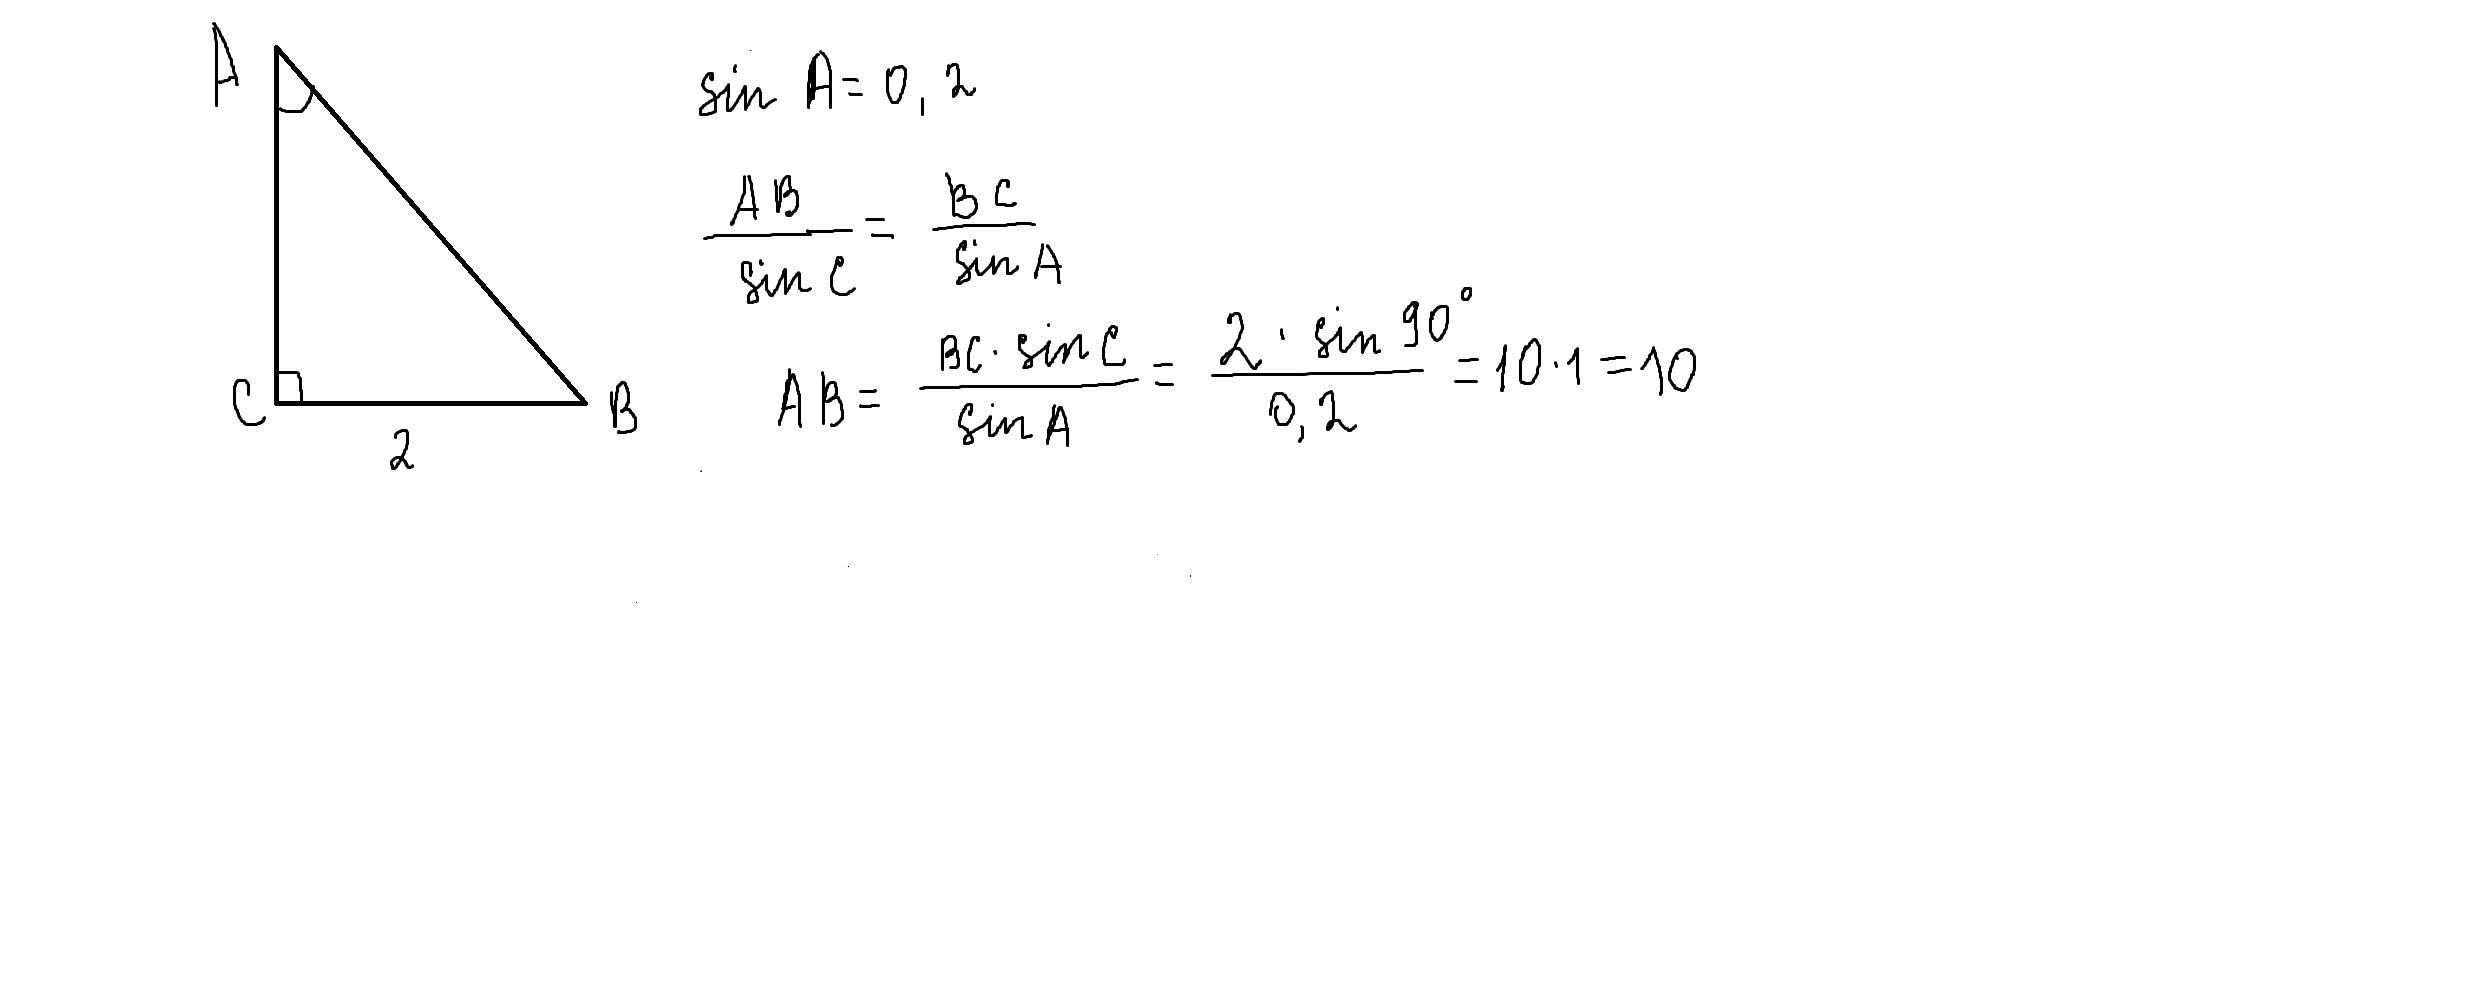 A
sin A = 0,2
AB/sin C = BC/sin A
AB = BC · sin C/sin A = 2 · sin 90°/0,2 = 10 · 1 = 10
C
B
2